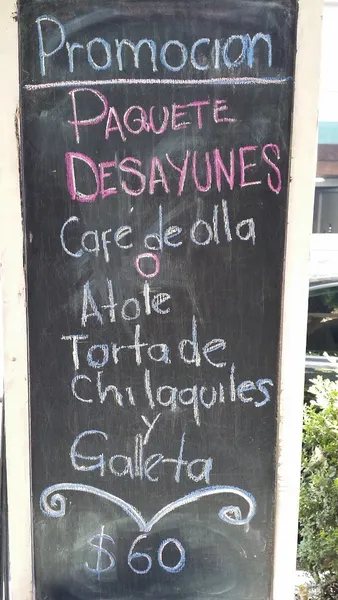 Promocion
PAQUETE
DESAYUNES
Café de olla
O
Atole
Torta de
Chilaquiles
y
Galleta
$60